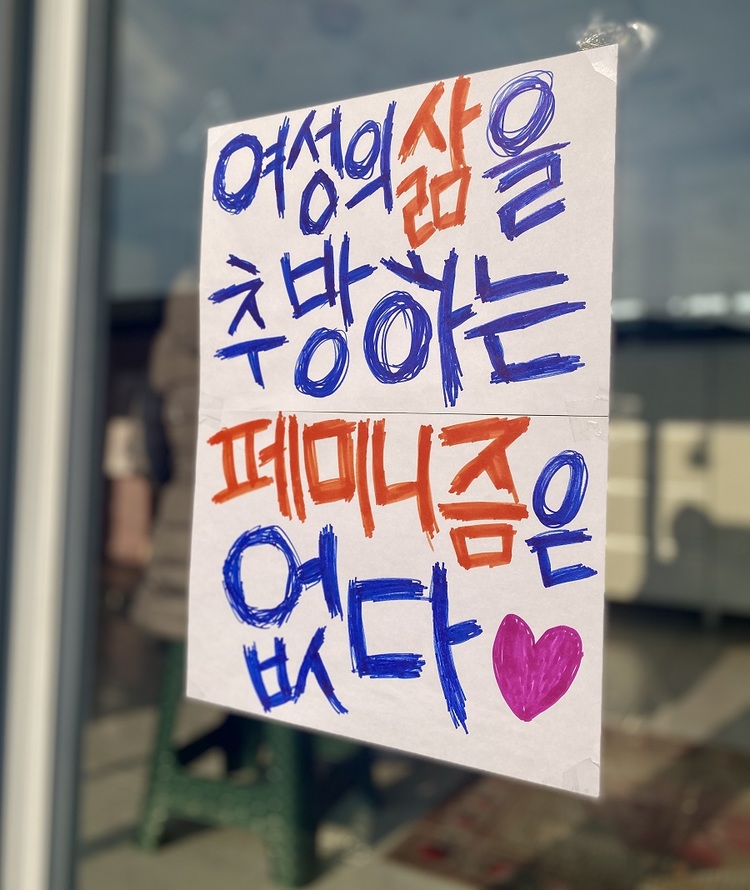 여성의 삶을
추방하는
페미니즘은
없다